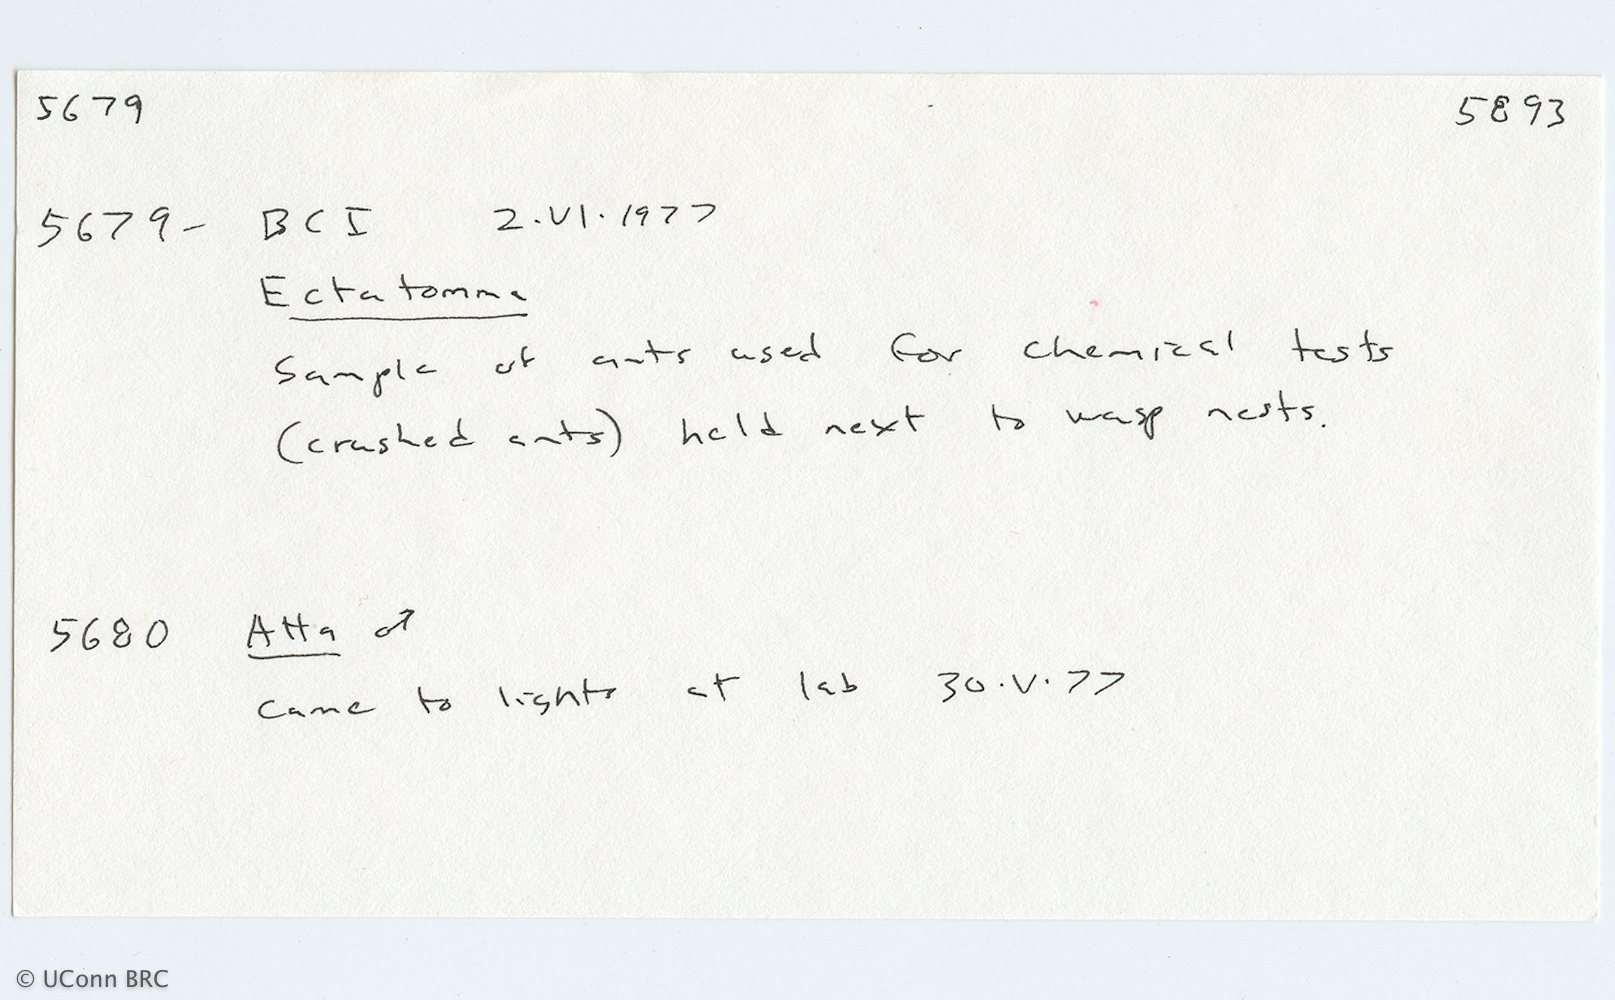 5679 5893
5679- BCI 2.VI.1977
Ectatomma
Sample of ants used for chemical tests
(crushed ants) held next to wasp nests.
5680 Atta ♂
Came to lights at lab 30.V.77
© UConn BRC